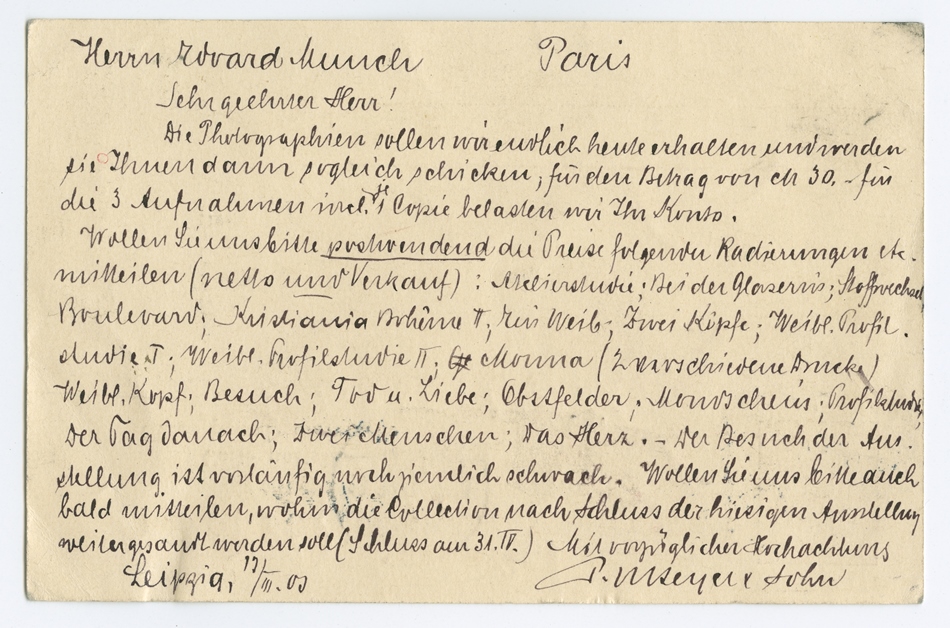 Herrn Edvard Munch Paris
Sehr geehrter Herr!
Die Photographien sollen wir endlich heute erhalten und werden
sie Ihnen dann sogleich schicken; für den Betrag von M 30.- für
die 3 Aufnahmen incl. je 1 Copie belasten wir Ihr Konto.
Wollen Sie uns bitte postwendend die Preise folgender Radierungen etc.
mitteilen (netto und Verkauf): Atelierstudie; Bei der Glaserin; Stoffwechsel,
Boulevard; Kristiania Bohême II; Ein Weib; Zwei Köpfe; Weibl. Profil.
studie I; Weibl. Profilstudie II; Monna (2 verschiedene Drucke)
Weibl. Kopf; Besuch; Tod u. Liebe; Obstfelder; Mondschein; Profilstudie;
Der Tag danach; Zwei Menschen; Das Herz. - Der Besuch der Aus.
stellung ist vorläufig noch ziemlich schwach. Wollen Sie uns bitte auch
bald mitteilen, wohin die Collection nach Schluss der hiesigen Ausstellung
weitergesandt werden soll (Schluss am 31. III.) Mit vorzüglicher Hochachtung
Leipzig, 13/III. 03 P. H. Beyer & Sohn